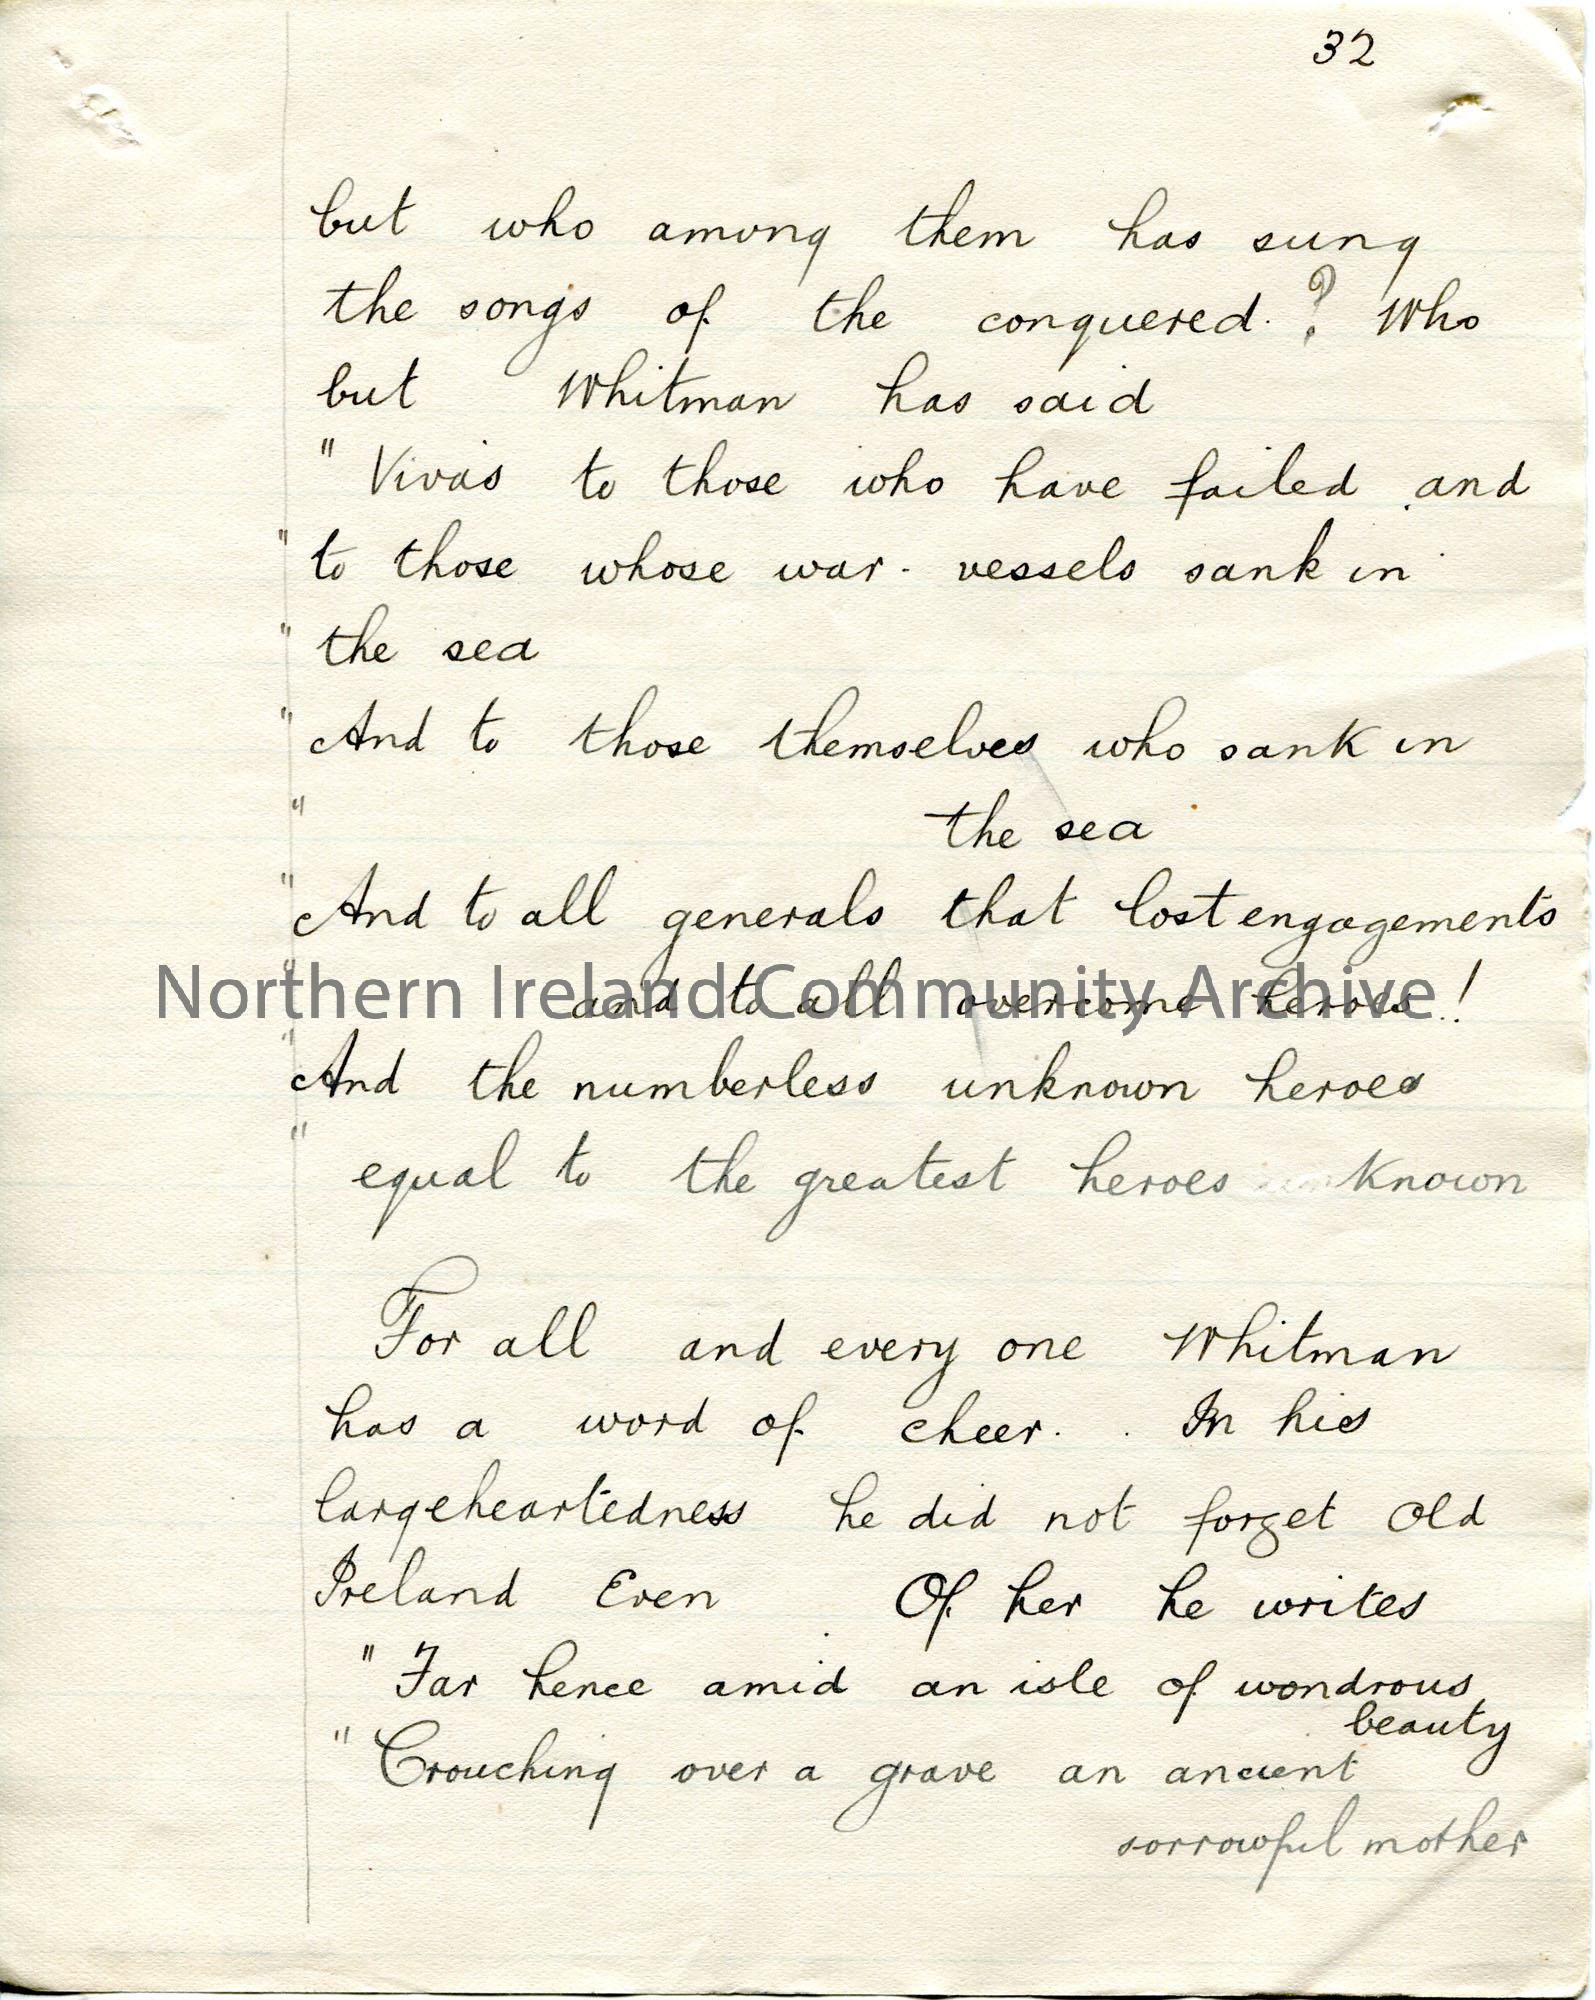 32
but who among them has sung
the songs of the conquered.? Who
but Whitman has said
" Viva's to those who have failed and
" to those whose war-vessels sank in
" the sea
" And to those themselves who sank in
" the sea
" And to all generals that lost engagements
" and to all overcome heroes!
" And the numberless unknown heroes
" equal to the greatest heroes known
For all and every one Whitman
has a word of cheer. In his
largeheartedness he did not forget Old
Ireland Even Of her he writes
" Far hence amid an isle of wondrous
beauty
" Crouching over a grave an ancient
sorrowful mother
Northern Ireland Community Archive